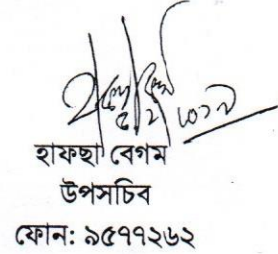 হাফছা বেগম
উপসচিব
ফোন: ৯৫৭৭২৬২